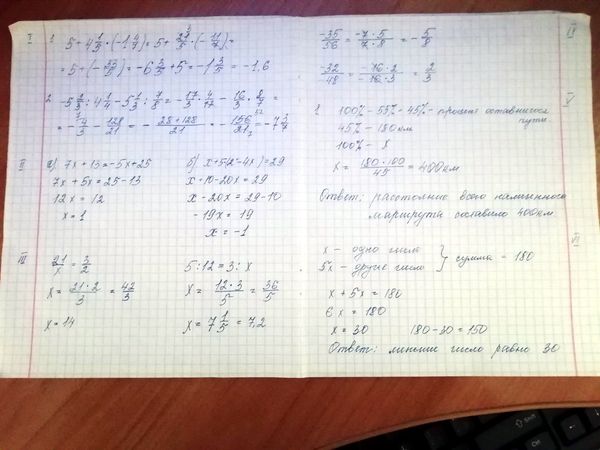 I
1 5 + 4 1/5 · (-1 4/7) = 5 + 21/5 · (-11/7) =
= 5 + (-33/5) = -6 3/5 + 5 = -1 3/5 = -1.6
2 -5 2/3 : 4 1/4 - 5 1/3 : 7/8 = -17/3 · 4/17 - 16/3 · 8/7 =
= -4/3 - 128/21 = - 28+128/21 = - 156/21 = -7 3/7
II
а) 7x + 13 = -5x + 25
7x + 5x = 25 - 13
12x = 12
x = 1
б) x + 5(2 - 4x) = 29
x + 10 - 20x = 29
x - 20x = 29 - 10
-19x = 19
x = -1
III
21/x = 3/2
x = 21·2/3 = 42/3
x = 14
5 : 12 = 3 : x
x = 12·3/5 = 36/5
x = 7 1/5 = 7,2
IV
-35/56 = -7·5/7·8 = -5/8
-32/-48 = -16·2/-16·3 = 2/3
V
1 100% - 55% = 45% - процент оставшегося
пути
45% - 180 км
100% - x
x = 180·100/45 = 400 км
Ответ: расстояние всего намеченного
маршрута составило 400 км.
VI
x - одно число
5x - другое число } сумма = 180
x + 5x = 180
6x = 180
x = 30 180 - 30 = 150
Ответ: меньшее число равно 30